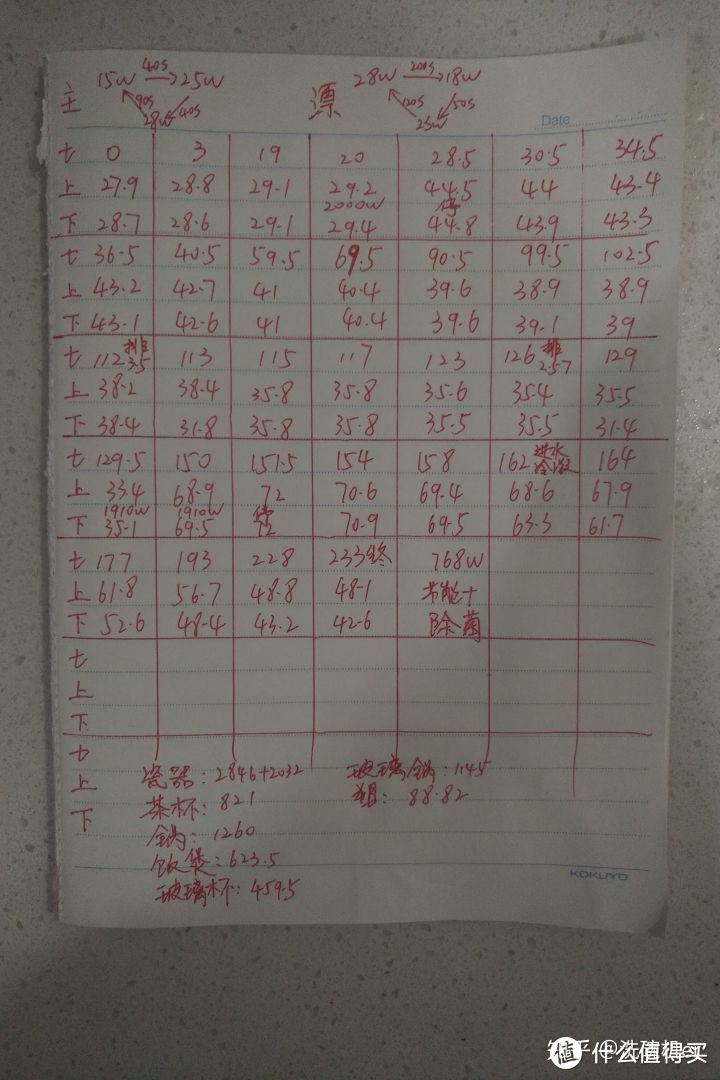 主 15W 40S 25W 漂 28W 20S 18W
90S 28W 40S 120S 23W 50S
Date
t 0 3 19 20 28.5 30.5 34.5
上 27.9 28.8 29.1 29.2 44.5 44 43.4
2000W 停
下 28.7 28.6 29.1 29.4 44.8 43.9 43.3
t 36.5 40.5 59.5 69.5 90.5 99.5 102.5
上 43.2 42.7 41 40.4 39.6 38.9 38.9
下 43.1 42.6 41 40.4 39.6 39.1 39
t 112 排 3.5 113 115 117 123 126 排 2.57 129
上 38.2 38.4 35.8 35.8 35.6 35.4 35.5
下 38.4 31.8 35.8 35.8 35.5 35.5 31.4
t 129.5 150 151.5 154 158 162 进水冷凝 164
上 33.4 68.9 72 70.6 69.4 68.6 67.9
1910W 1910W 停
下 35.1 69.5 72 70.9 69.5 63.3 61.7
t 177 193 228 233终 768W
上 61.8 56.7 48.8 48.1 节能+
下 52.6 48.4 43.2 42.6 除菌
t
上
下
t
上
下
瓷器：2846+2032 玻璃锅：1145
茶杯：821 粗：88.82
锅：1260
饭煲：623.5
玻璃杯：459.5
KOKUYO
值 什么值得买